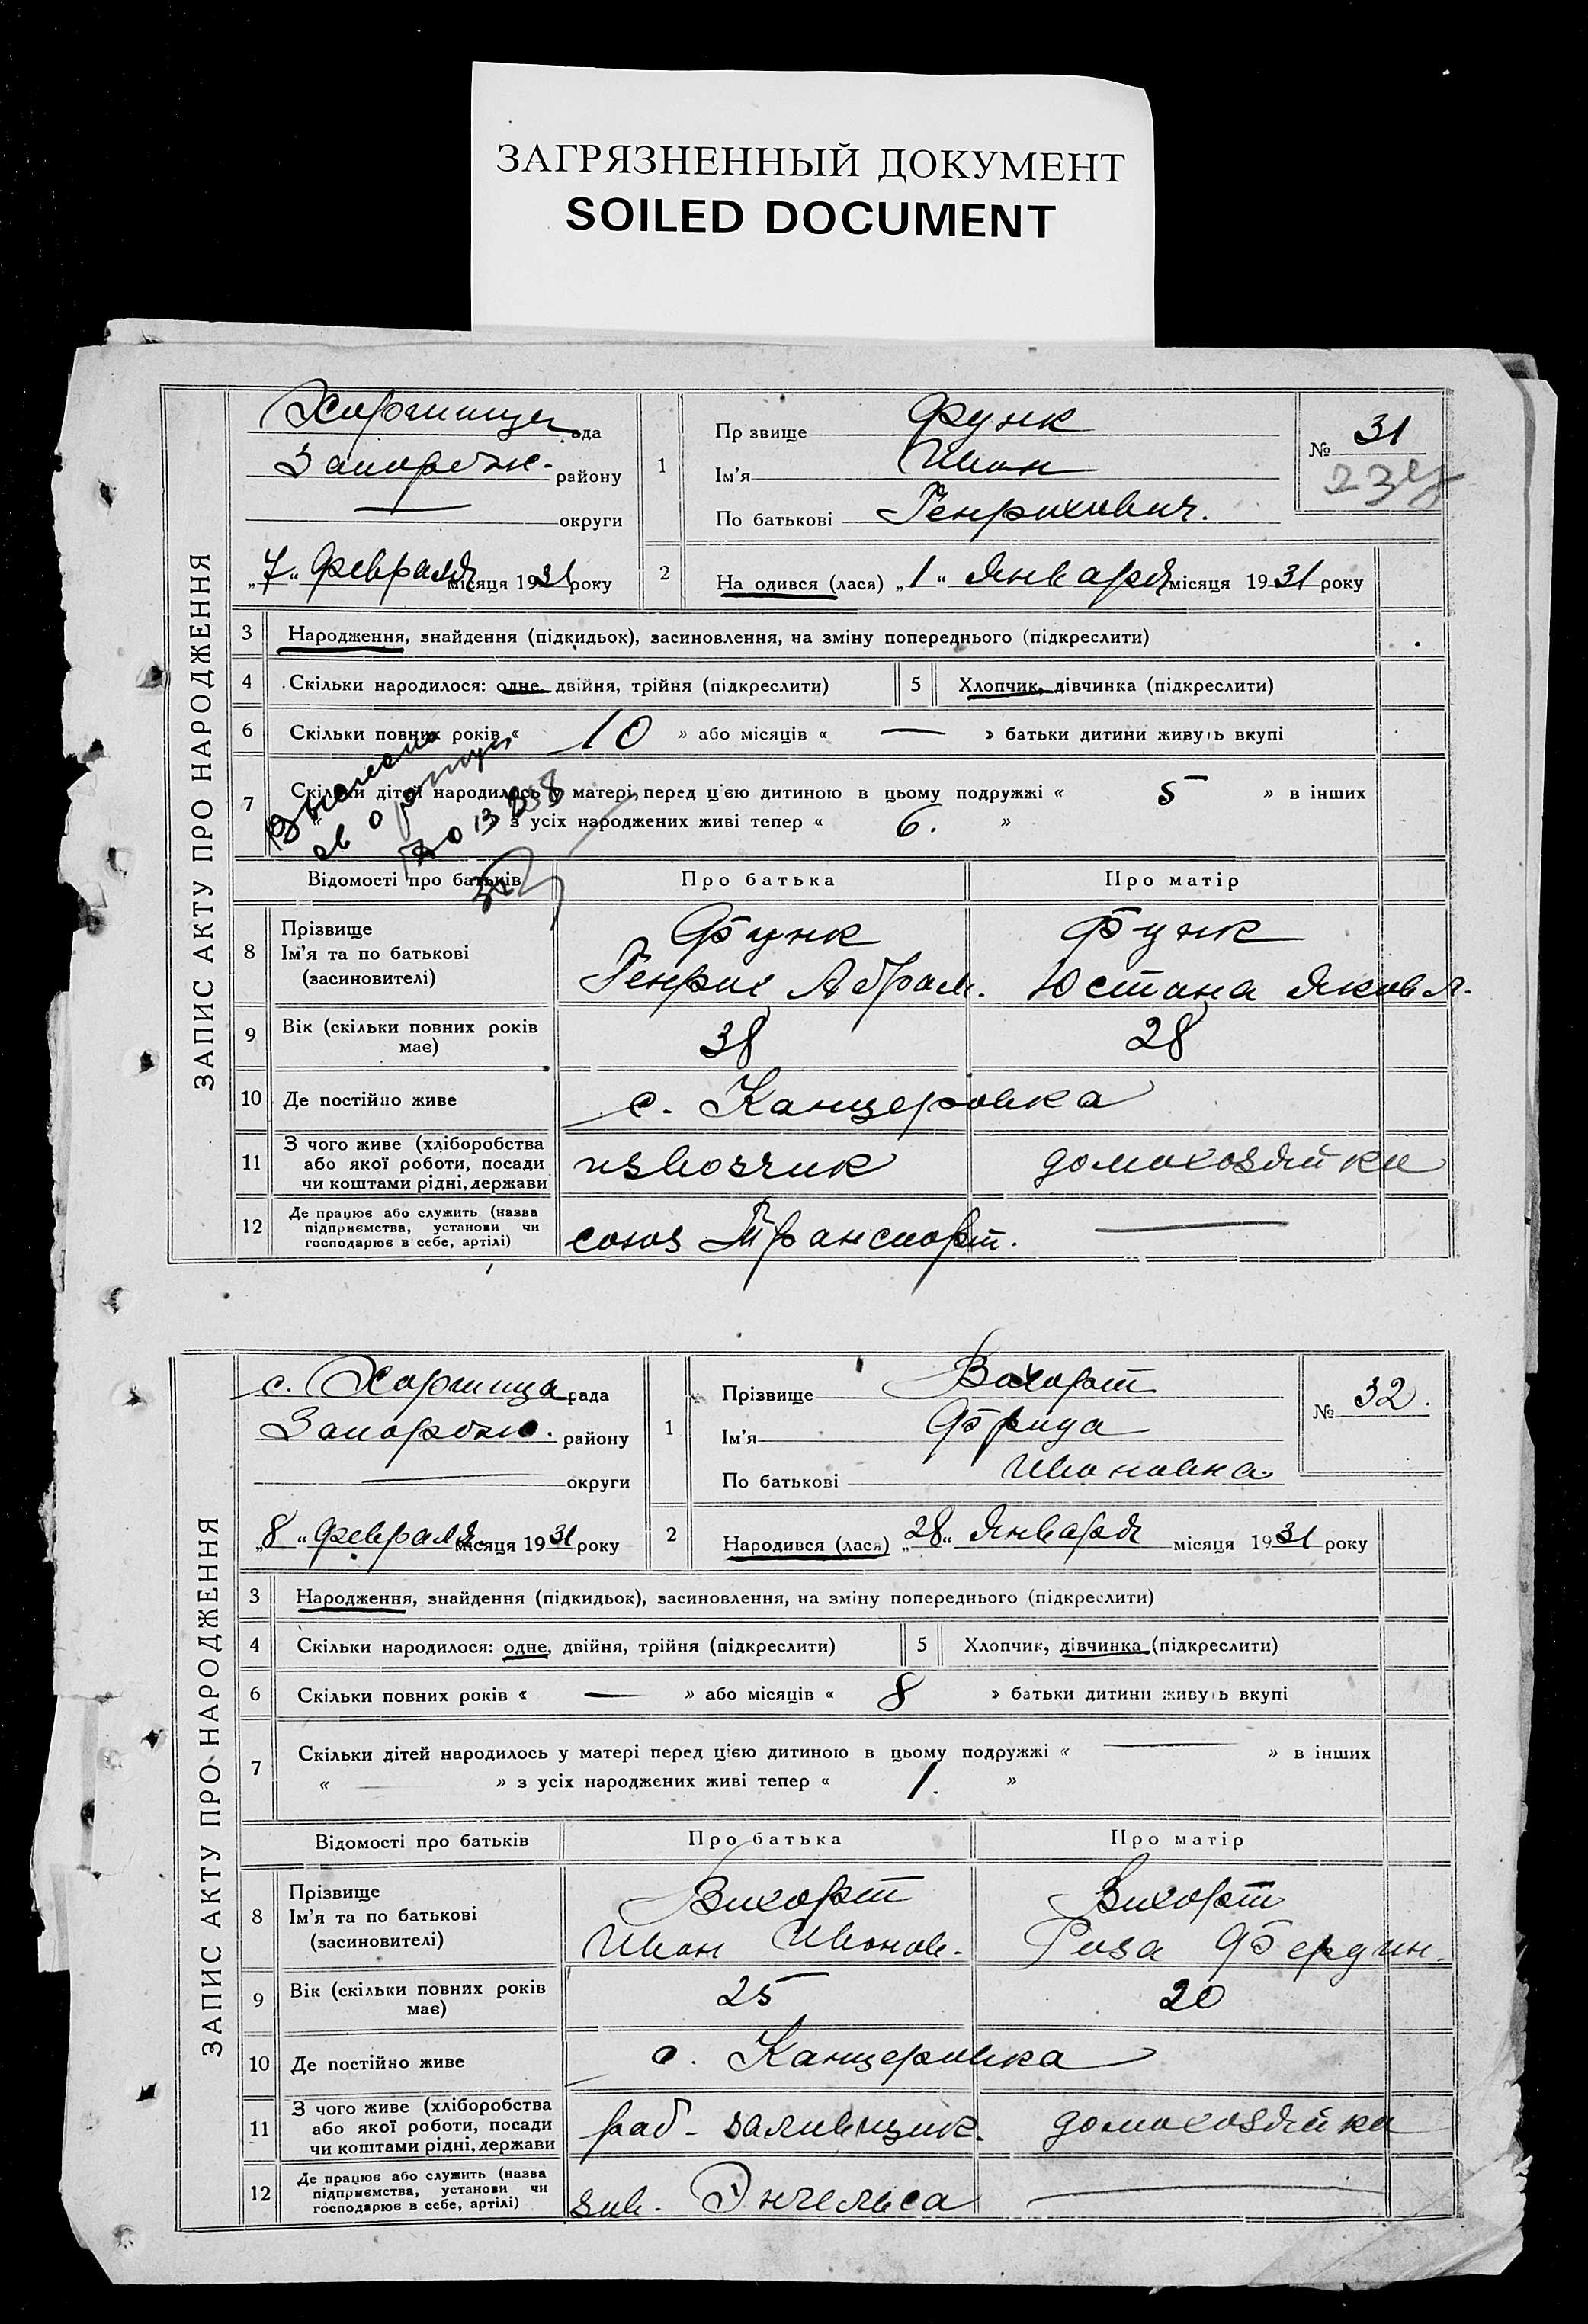 ЗАГРЯЗНЕННЫЙ ДОКУМЕНТ
SOILED DOCUMENT
ЗАПИС АКТУ ПРО НАРОДЖЕННЯ
Хортица рада
Запорож. району
— округи
„7“ Февраля місяця 1931 року
1
Пр звище Функ
Ім'я Иван
По батькові Генрихович.
№ 31
2
На одився (лася) „1“ Января місяця 1931 року
3 Народження, знайдення (підкидьок), засиновлення, на зміну попереднього (підкреслити)
4 Скільки народилося: одне, двійня, трійня (підкреслити)
5 Хлопчик, дівчинка (підкреслити)
6 Скільки повних років « 10 » або місяців « — » батьки дитини живуть вкупі
7 Скільки дітей народилось у матері перед цією дитиною в цьому подружжі « 5 » в інших
« з усіх народжених живі тепер « 6. »
Відомості про батьків
Про батька
Про матір
8 Прізвище
Ім'я та по батькові
(засновителі)
Функ
Генрих Абрам.
Функ
Юстина Яковл.
9 Вік (скільки повних років
має)
38
28
10 Де постійно живе
с. Канцеровка
11 З чого живе (хліборобства
або якої роботи, посади
чи коштами рідні, держави
извозчик
домохозяйка
12 Де працює або служить (назва
підприємства, установи чи
господарює в себе, артілі)
союз Транспорт.
—
ЗАПИС АКТУ ПРО НАРОДЖЕННЯ
с. Хортица рада
Запорож. району
— округи
„8“ Февраля місяця 1931 року
1
Прізвище Вихорт
Ім'я Фрида
По батькові Ивановна
№ 32.
2
Народився (лася) „28“ Января місяця 1931 року
3 Народження, знайдення (підкидьок), засиновлення, на зміну попереднього (підкреслити)
4 Скільки народилося: одне, двійня, трійня (підкреслити)
5 Хлопчик, дівчинка (підкреслити)
6 Скільки повних років « — » або місяців « 8 » батьки дитини живуть вкупі
7 Скільки дітей народилось у матері перед цією дитиною в цьому подружжі « — » в інших
« — » з усіх народжених живі тепер « 1. »
Відомості про батьків
Про батька
Про матір
8 Прізвище
Ім'я та по батькові
(засиновителі)
Вихорт
Иван Иванов.
Вихорт
Роза Фердин.
9 Вік (скільки повних років
має)
25
20
10 Де постійно живе
с. Канцеровка
11 З чого живе (хліборобства
або якої роботи, посади
чи коштами рідні, держави
раб. заливщик.
домохозяйка
12 Де працює або служить (назва
підприємства, установи чи
господарює в себе, артілі)
зав. Энгельса
—